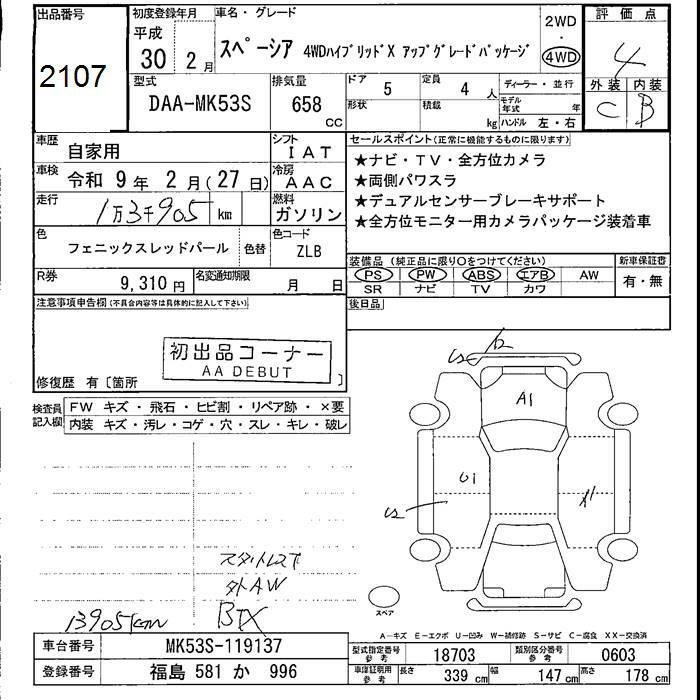 出品番号
2107
初度登録年月
平成
30 年 2 月
車名・グレード
スペーシア 4WDハイブリッドX アップグレードパッケージ
2WD
・
4WD
評価点
4
外装 内装
C B
型式
DAA-MK53S
排気量
658
CC
ドア
5
形状
定員
4 人
積載
kg
ディーラー・並行
モデル年式 年
ハンドル 左・右
車歴
自家用
シフト
IAT
車検
令和 9 年 2 月(27 日)
冷房
AAC
走行
1万3千905 km
燃料
ガソリン
色
フェニックスレッドパール
色替
色コード
ZLB
R券
9,310 円
名変通知期限
月 日
セールスポイント(正常に機能するものに限ります)
★ナビ・TV・全方位カメラ
★両側パワスラ
★デュアルセンサーブレーキサポート
★全方位モニター用カメラパッケージ装着車
装備品(純正品に限り○をつけてください)
PS PW ABS エアB AW
SR ナビ TV カワ
新車保証書
有・無
後日品
注意事項申告欄(不具合内容等は具体的に記入して下さい)
初出品コーナー
AA DEBUT
修復歴 有〔箇所 〕
検査員記入欄
FW キズ・飛石・ヒビ割・リペア跡・×要
内装 キズ・汚レ・コゲ・穴・スレ・キレ・破レ
A1
U1
スタットレスT
外AW
BTX
13905km
スペア
A-キズ E-エクボ U-凹み W-補修跡 S-サビ C-腐食 XX-交換済
車台番号
MK53S-119137
登録番号
福島 581 か 996
型式指定番号
参考
18703
類別区分番号
参考
0603
車庫証明用
参考
長さ
339 cm
幅
147 cm
高さ
178 cm